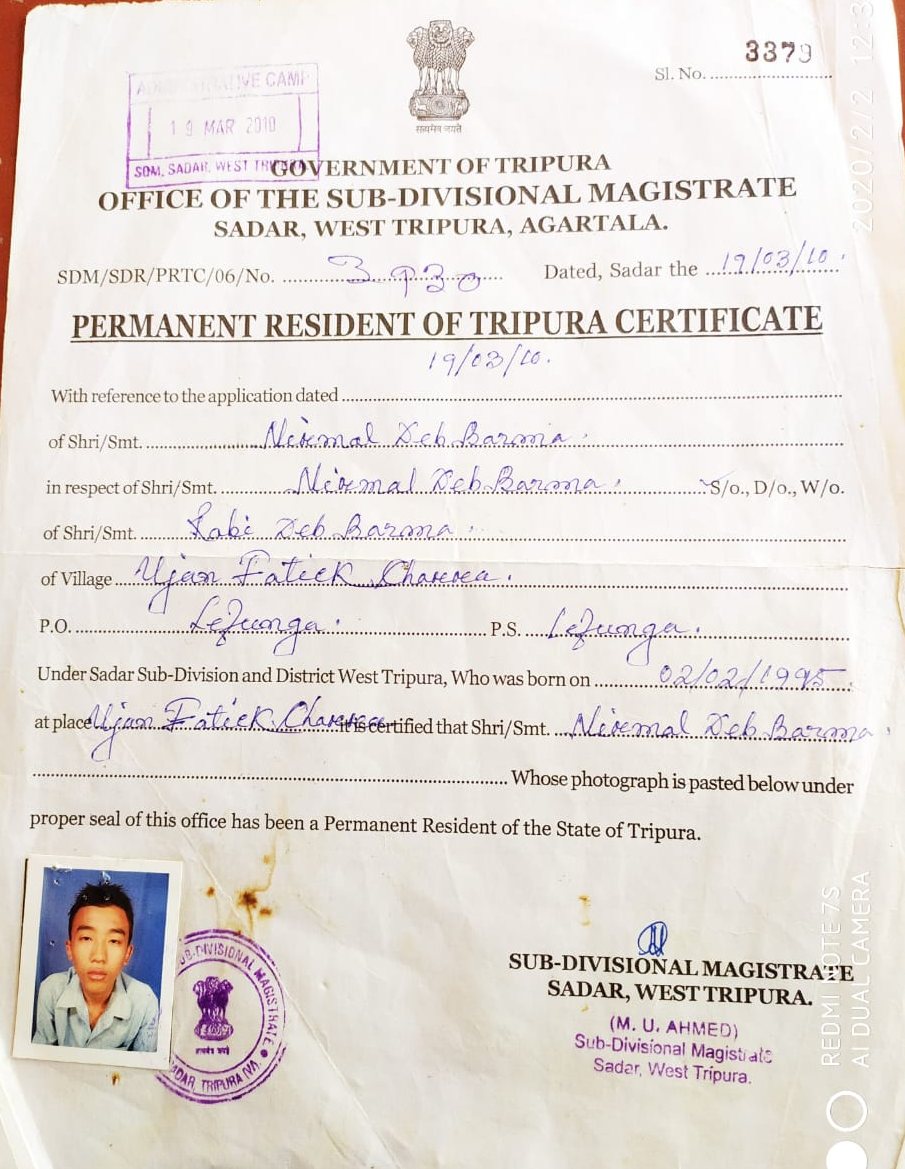 3379
Sl. No. ........................
ADMINISTRATIVE CAMP
19 MAR 2010
SDM, SADAR, WEST TRIPURA
सत्यमेव जयते
GOVERNMENT OF TRIPURA
OFFICE OF THE SUB-DIVISIONAL MAGISTRATE
SADAR, WEST TRIPURA, AGARTALA.
SDM/SDR/PRTC/06/No. Dated, Sadar the 19/03/10.
PERMANENT RESIDENT OF TRIPURA CERTIFICATE
19/03/10.
With reference to the application dated
of Shri/Smt. Nirmal Deb Barma.
in respect of Shri/Smt. Nirmal Deb Barma. S/o., D/o., W/o.
of Shri/Smt. Rabi Deb Barma.
of Village Ujan Fatick Charra.
P.O. Lefunga. P.S. Lefunga.
Under Sadar Sub-Division and District West Tripura, Who was born on 02/02/1995.
at place Ujan Fatick Charra it is certified that Shri/Smt. Nirmal Deb Barma.
Whose photograph is pasted below under
proper seal of this office has been a Permanent Resident of the State of Tripura.
SUB-DIVISIONAL MAGISTRATE
SADAR, TRIPURA (W)
SUB-DIVISIONAL MAGISTRATE
SADAR, WEST TRIPURA.
(M. U. AHMED)
Sub-Divisional Magistrate
Sadar, West Tripura.
REDMI NOTE 7S
AI DUAL CAMERA
2020/2/2 12:3